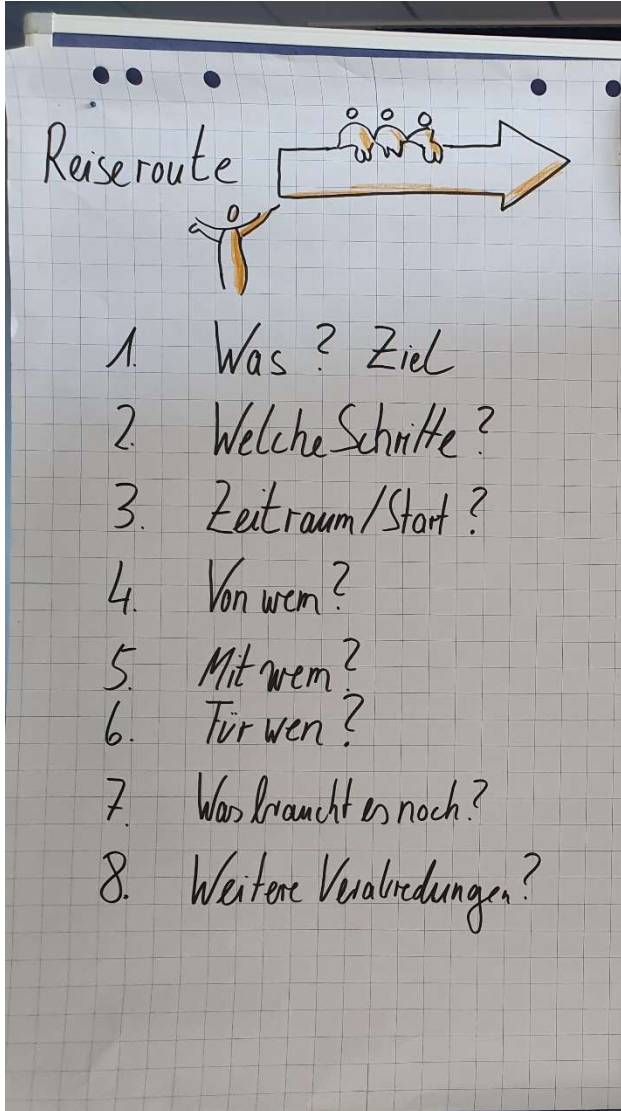 Reiseroute
1. Was? Ziel
2. Welche Schritte?
3. Zeitraum/Start?
4. Von wem?
5. Mit wem?
6. Für wen?
7. Was braucht es noch?
8. Weitere Verabredungen?